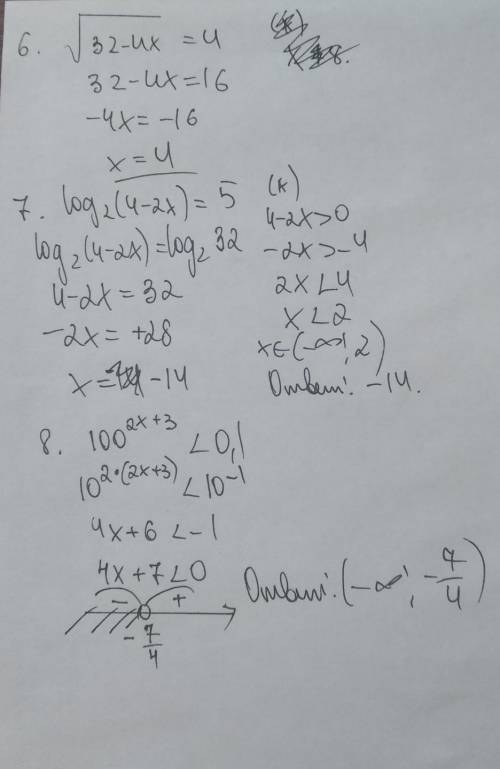 6. √(32-4x) = 4
32-4x=16
-4x=-16
x=4
7. log₂(4-2x)=5
log₂(4-2x)=log₂32
4-2x=32
-2x=+28
x=-14
(*)
4-2x>0
-2x>-4
2x<4
x<2
x∈(-∞; 2)
Ответ: -14.
8. 100^(2x+3) <0,1
10^(2•(2x+3)) <10^(-1)
4x+6<-1
4x+7<0
- +
-7/4
Ответ: (-∞; -7/4)